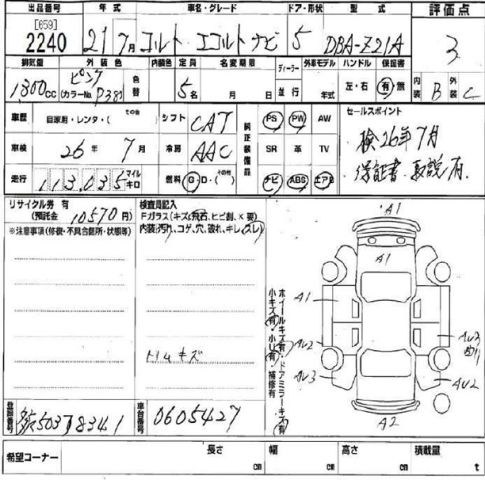 出品番号 年式 車名・グレード ドア・形状 型式 評価点
[659]
2240 21年 7月 コルト エコルト ナビ 5 DBA-Z21A 3
排気量 外装色 内装色 定員 名変期限 ディーラー 外車モデル ハンドル 保証書 内装 外装
1300cc ピンク (カラーNo. P38) 色替 5名 月 日 並行 年式 左・右 有・無 B C
車歴 自家用・レンタ・( その他 ) シフト CAT 純正装備品 PS PW AW セールスポイント
車検 26年 7月 冷房 AAC SR 革 TV 検26年7月
走行 113,035 マイル キロ 燃料 G・D・(その他) ナビ ABS エアB 保証書、取説有
リサイクル券 有
(預託金 10570円)
※注意事項(修復・不具合箇所・状態等)
検査員記入
Fガラス(キズ,飛石,ヒビ割,×要)
内装,汚れ,コゲ,穴,破れ,キレ,ズレ)
トリムキズ
小キズ有・小凹有・補修有
ホイールキズ有・ドアミラーキズ有
A1
A1
A1
AU2
AU3
AU3
AU2
A2
登録番号 503 8341
車台番号 0605427
希望コーナー 長さ cm 幅 cm 高さ cm 積載量 t